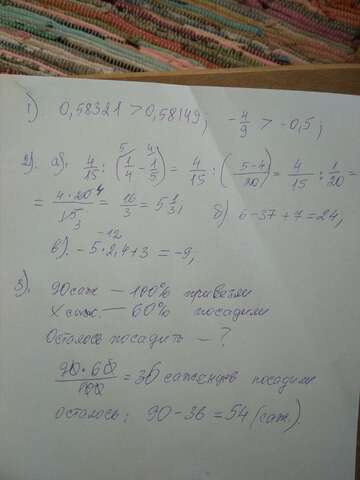 1). 0,58321 > 0,58149; -4/9 > -0,5;
2). а). 4/15 : (1/4 - 1/5) = 4/15 : (5-4/20) = 4/15 : 1/20 =
= 4·20/15 = 16/3 = 5 1/3; б) 6-37+7=24,
в). -5·2,4+3 = -9,
3). 90 саж — 100% привезли
X саж. — 60% посадили
Осталось посадить — ?
90·60/100 = 36 саженцев посадили
осталось: 90-36 = 54 (саж.)